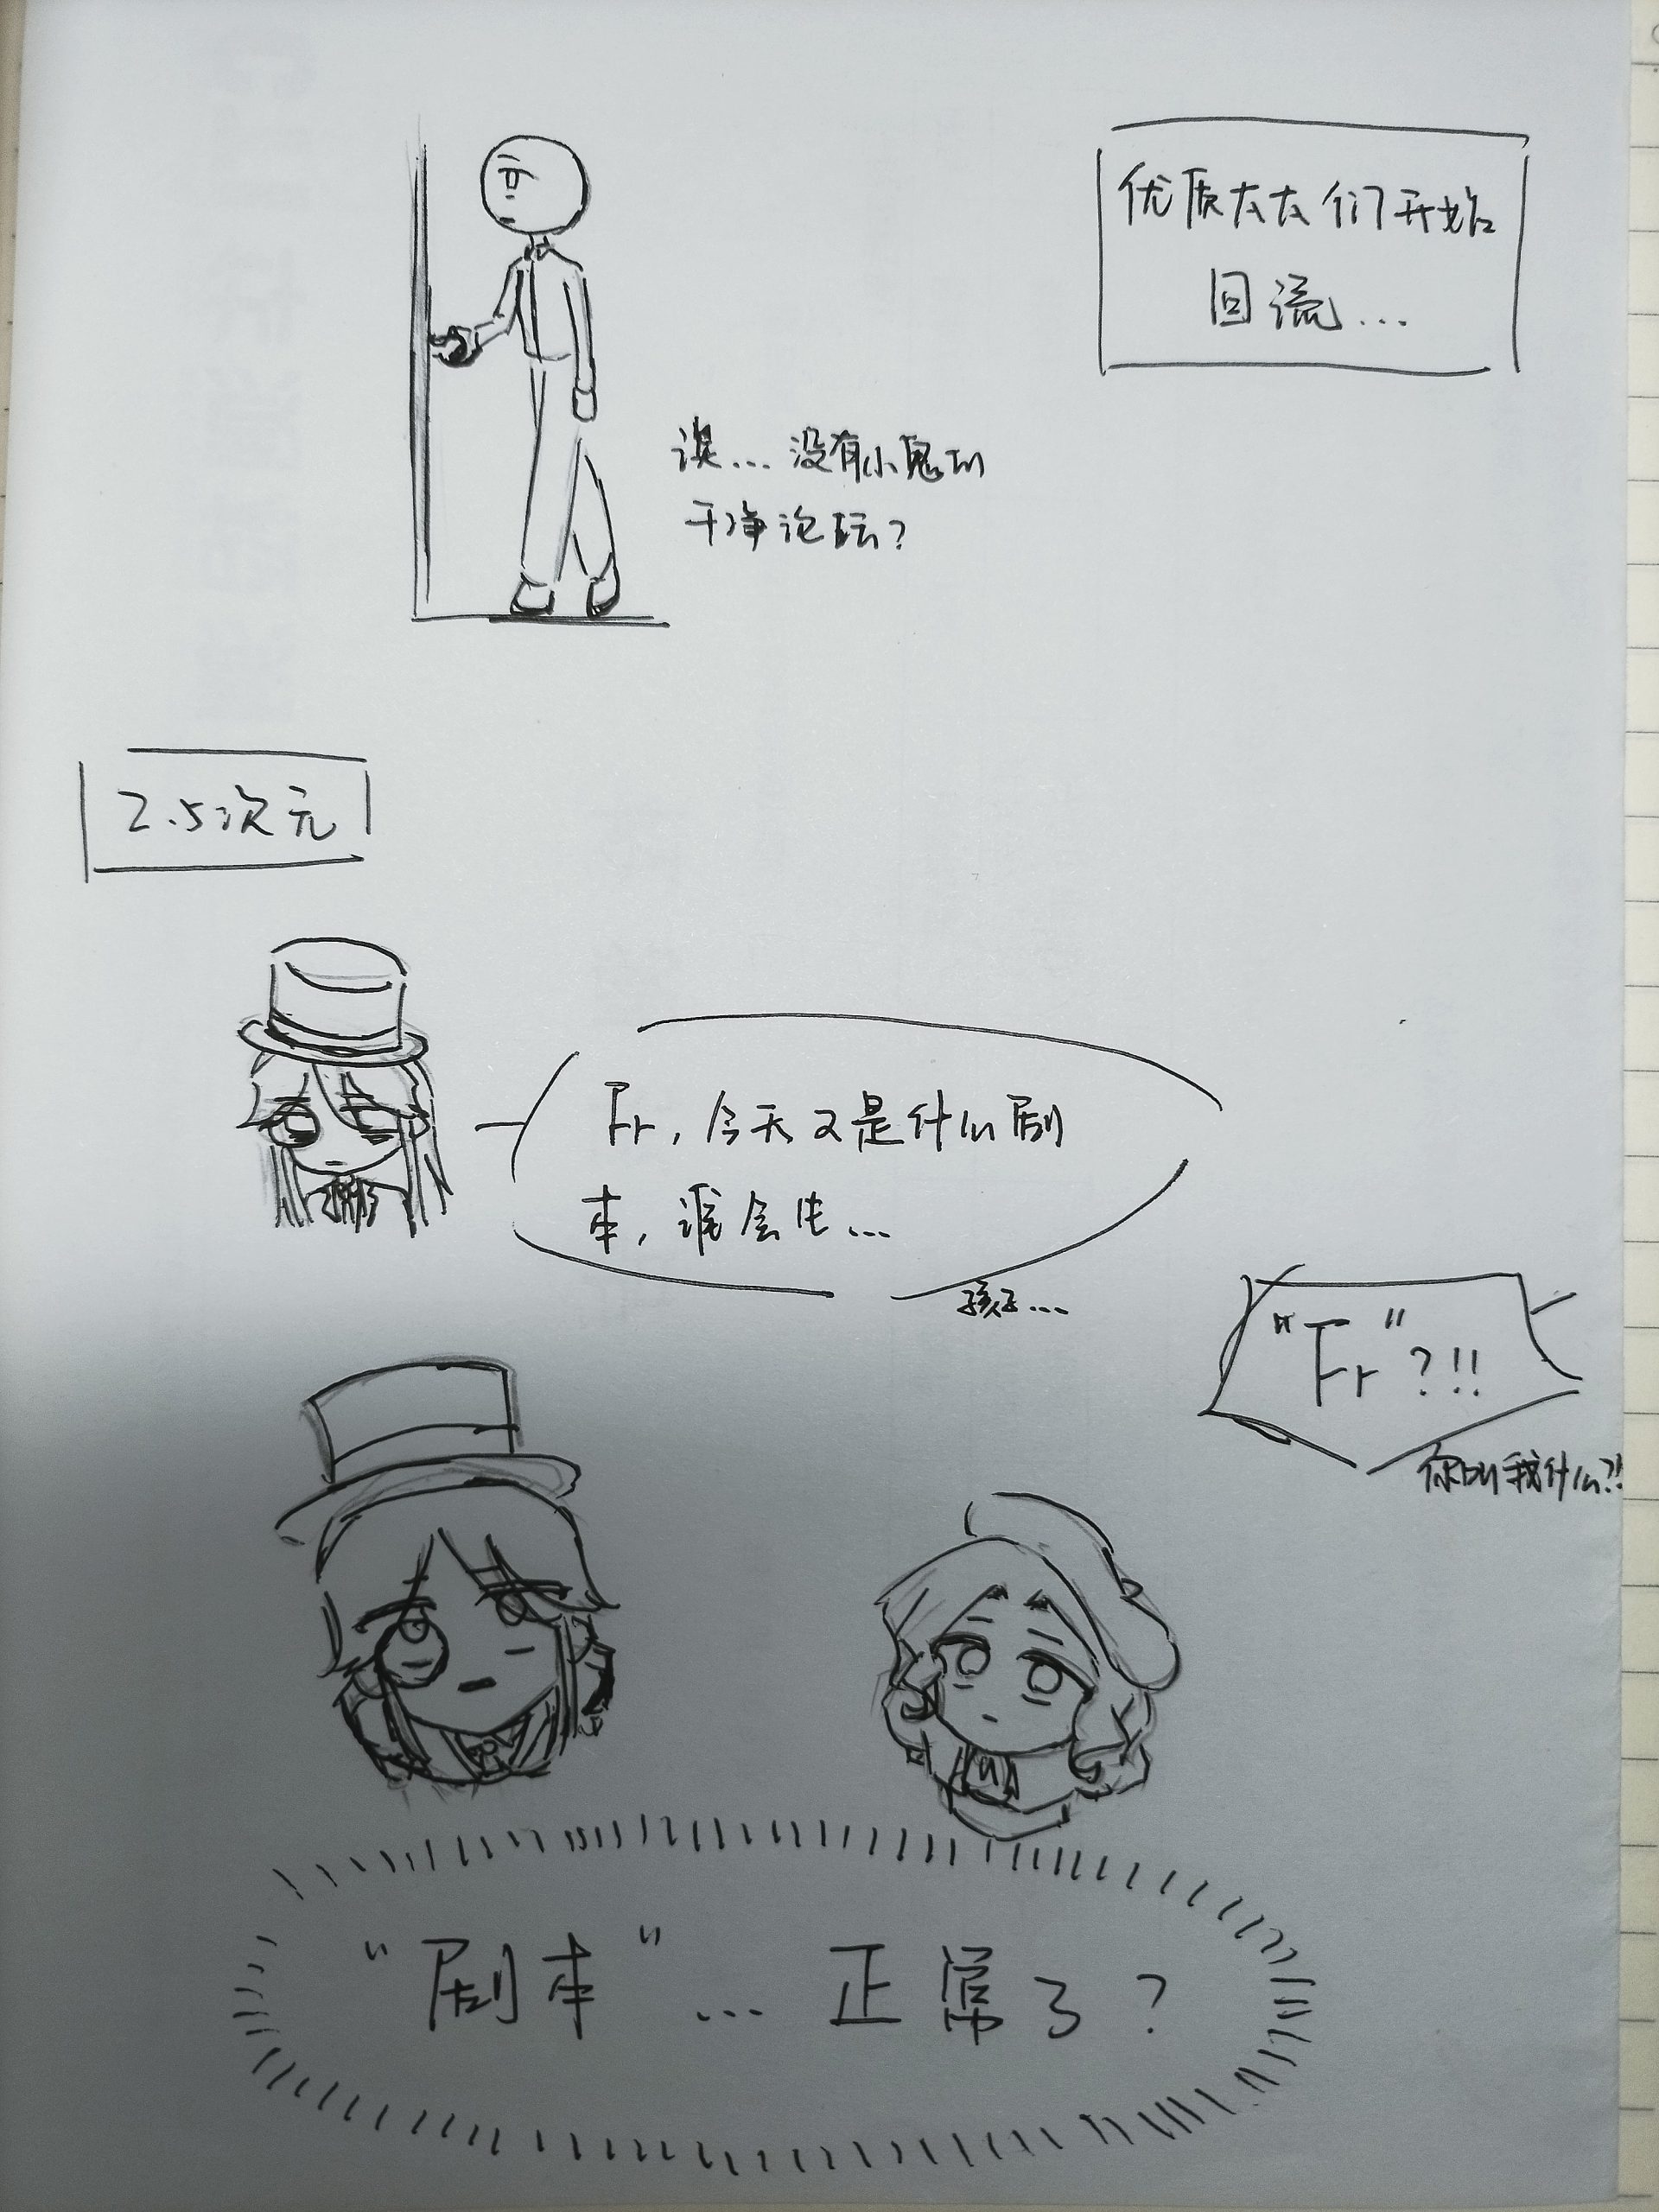 优质太太们开始
回流...
诶...没有小鬼的
干净论坛?
2.5次元
Fr,今天又是什么剧
本,谁会生...
孩子...
"Fr"?!!
你叫我什么?!
"剧本"...正常了?